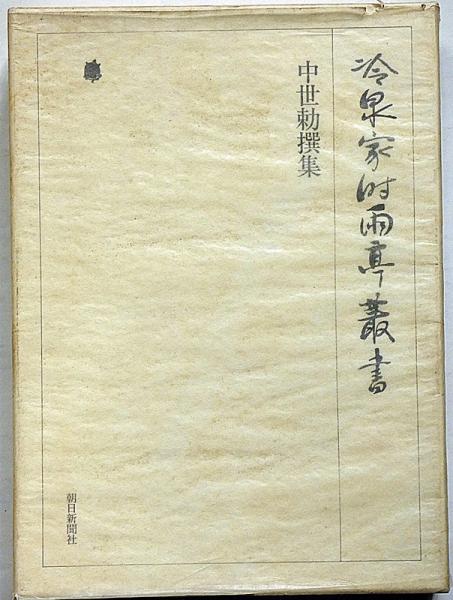 冷泉家时雨亭叢書
中世勅撰集
朝日新聞社